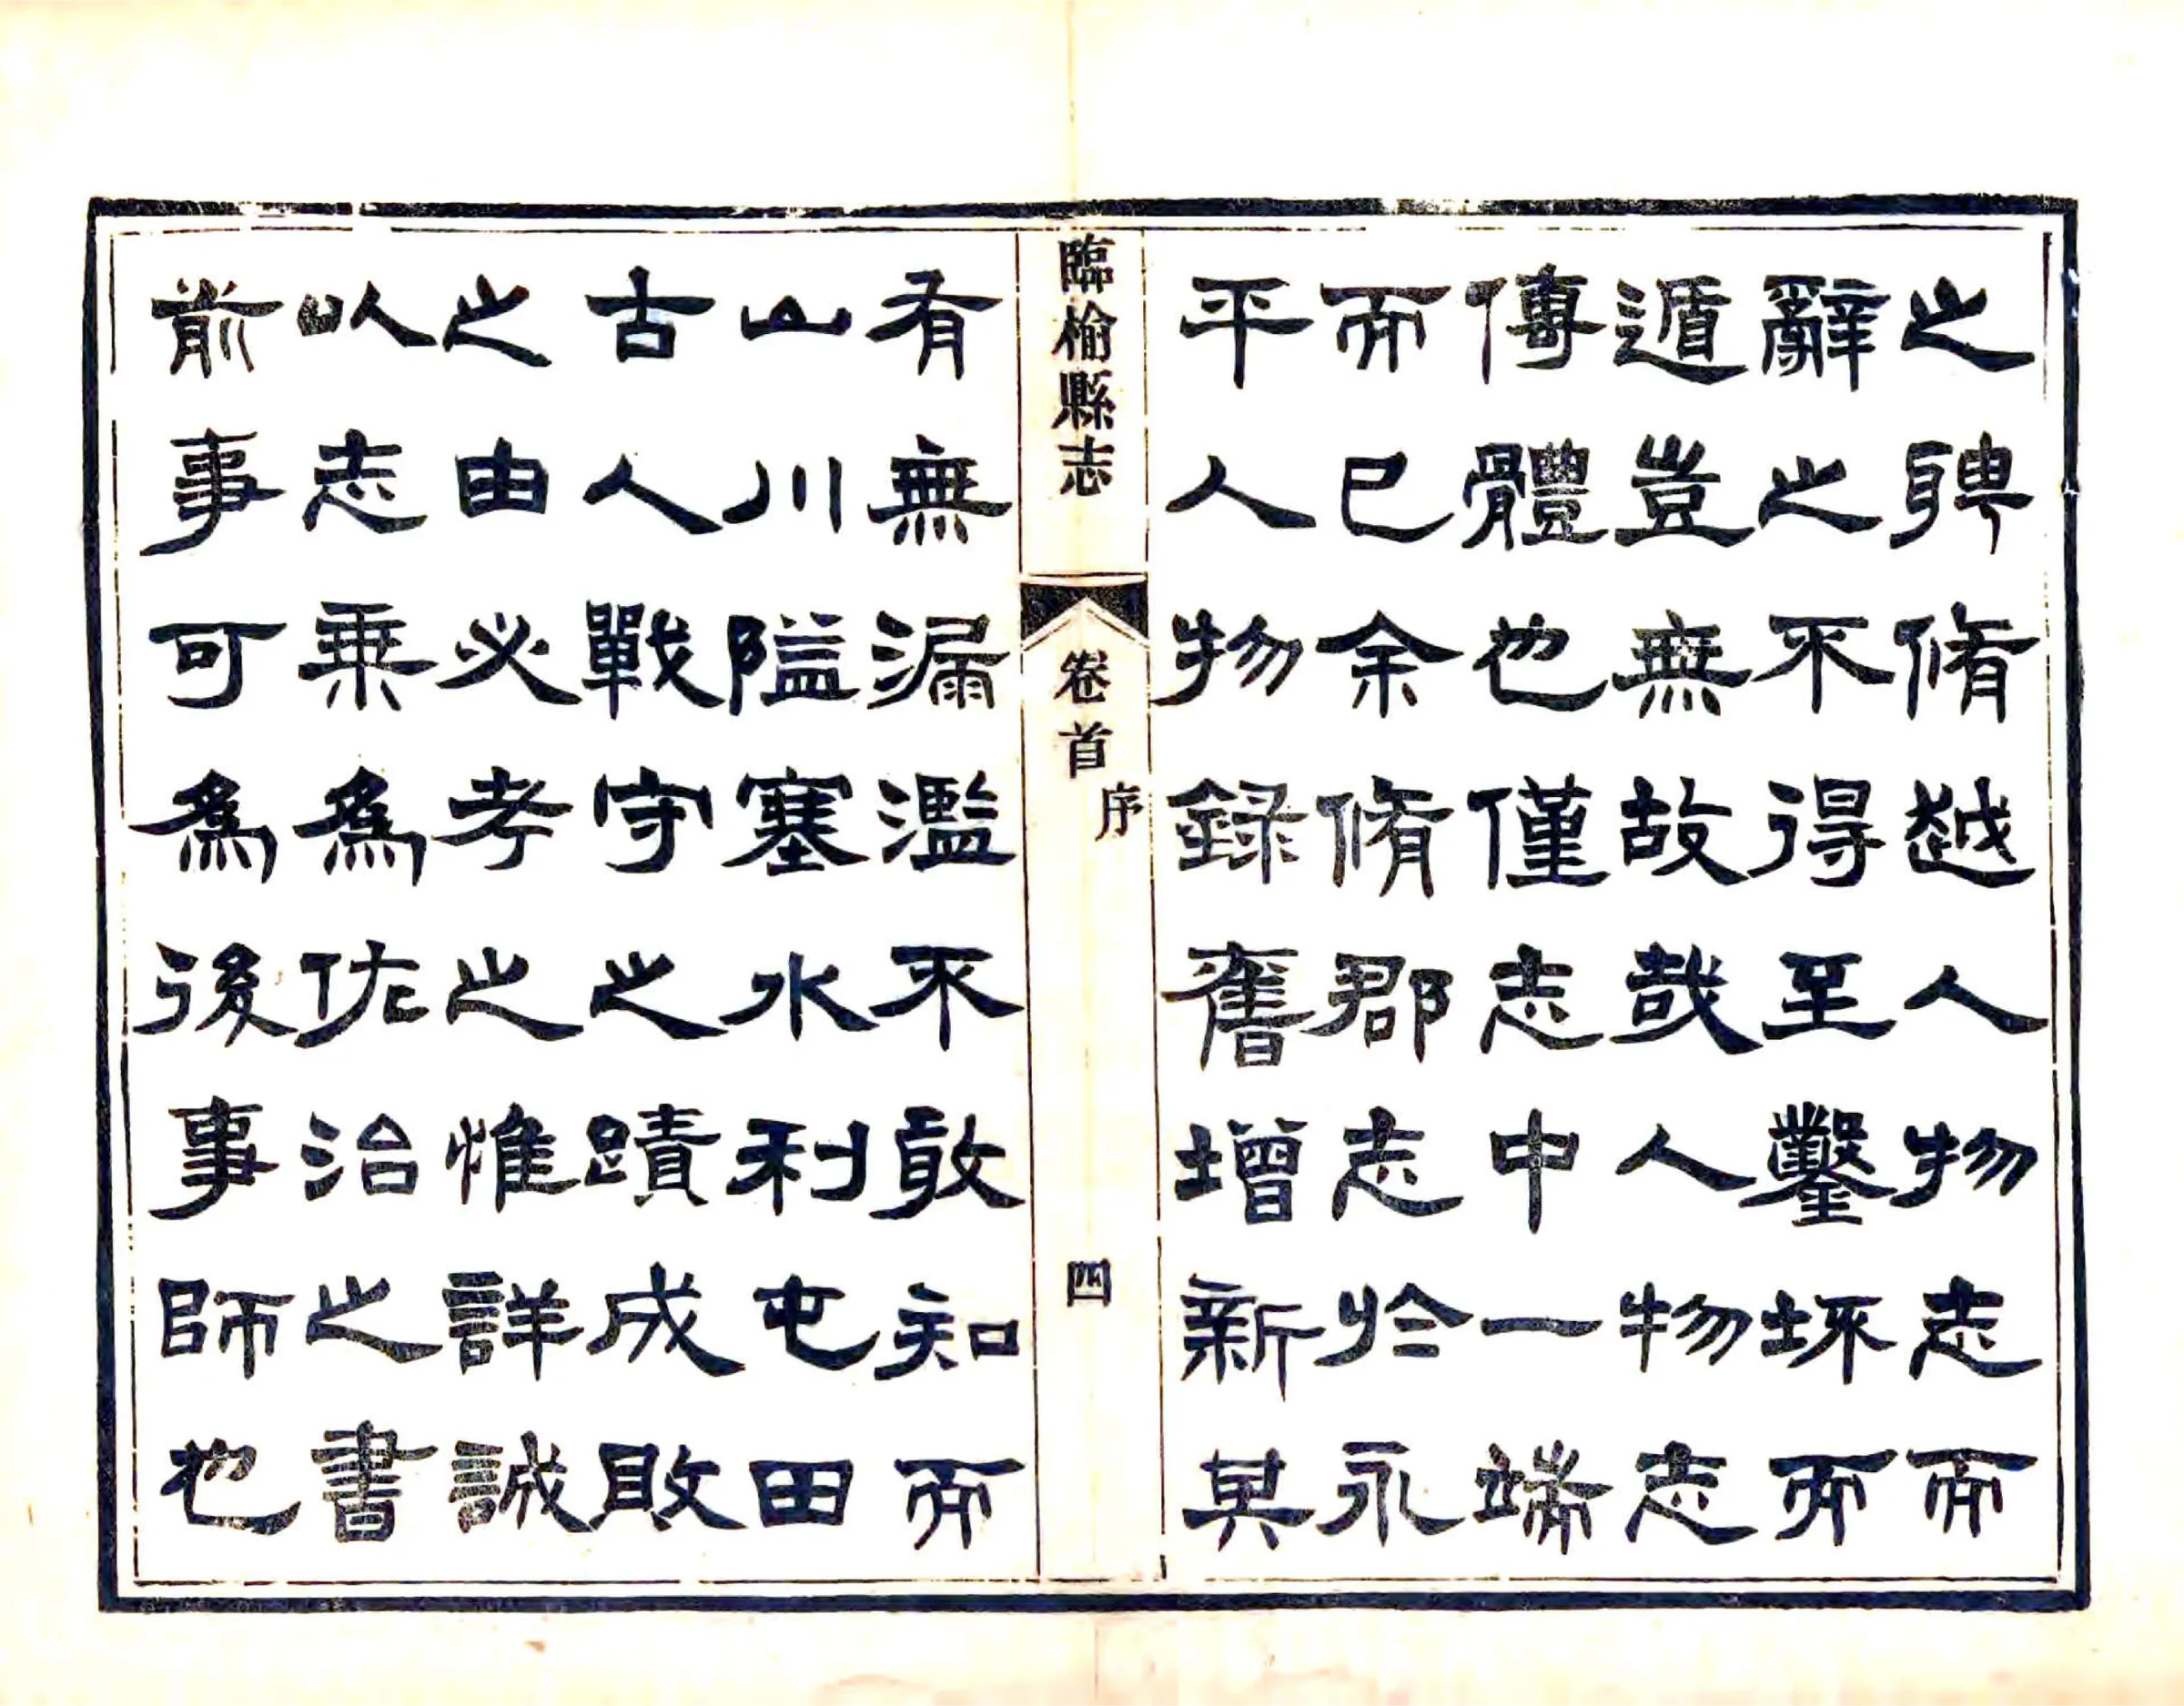 之聘脩越人物志而
辭之不得至鑿坏而
遁豈無故哉人物志
傳體也僅志中一端
而已余脩郡志於永
平人物錄舊增新其
臨榆縣志
卷首
序
四
有無漏濫不敢知而
山川隘塞水利屯田
古人戰守之蹟成敗
之由必考之惟詳誠
以志乘為佐治之書
前事可為後事師也